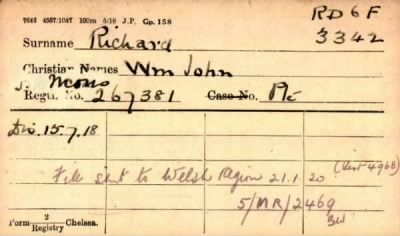 7643 4567/1047 100m 5/18 J.P. Gp. 158
RD 6 F
3342
Surname Richard
Christian Names Wm John
S. Mons
Regtl. No. 267381 Case No. Pte
Dis. 15.7.18
File sent to Welsh Region 21.1.20 (List 4968)
5/MR/2469
Form 2 Registry Chelsea.